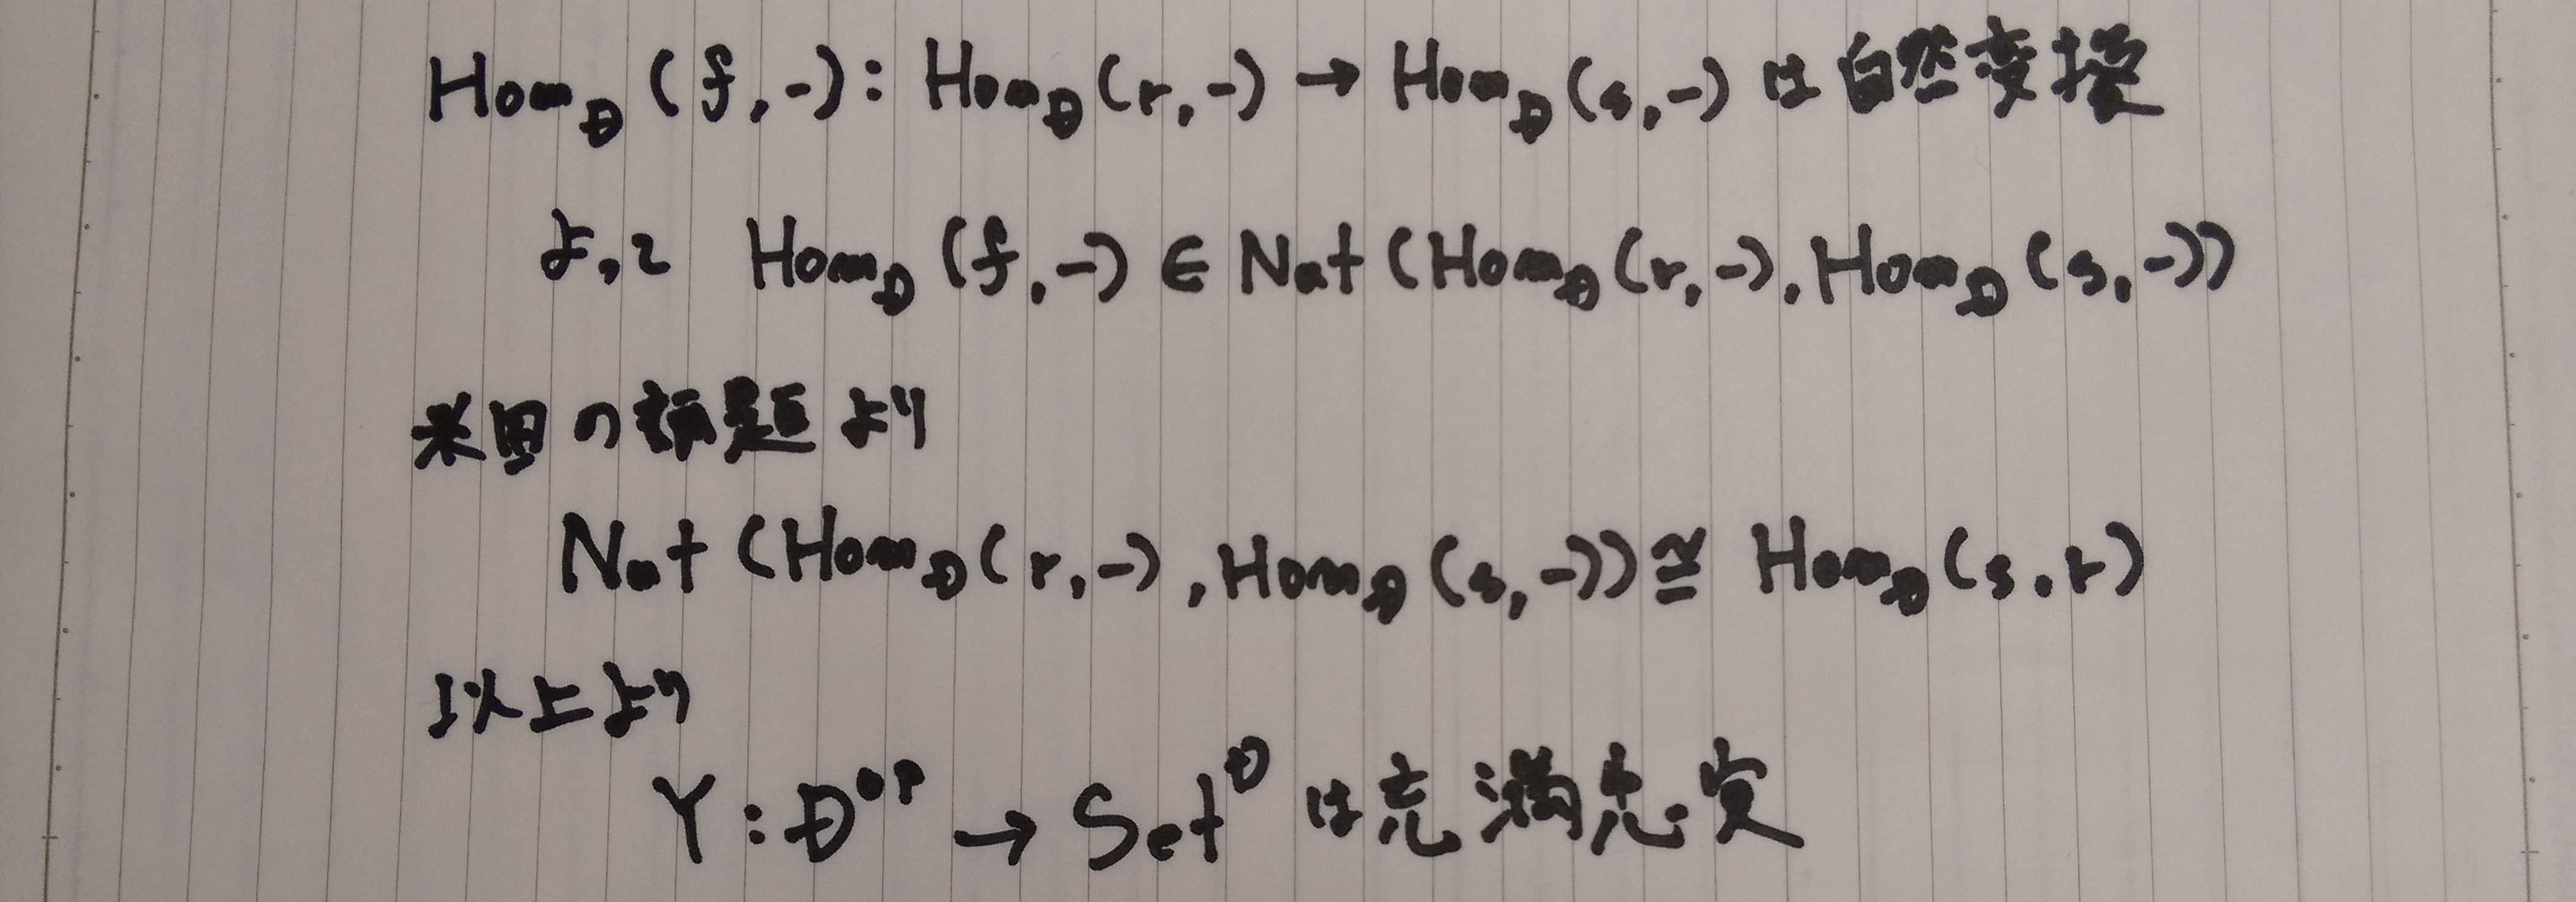 Hom_D(f,-): Hom_D(r,-) → Hom_D(s,-) は自然変換
よって Hom_D(f,-) ∈ Nat(Hom_D(r,-), Hom_D(s,-))
米田の補題より
Nat(Hom_D(r,-), Hom_D(s,-)) ≅ Hom_D(s,r)
以上より
Y: D^op → Set^D は充満忠実